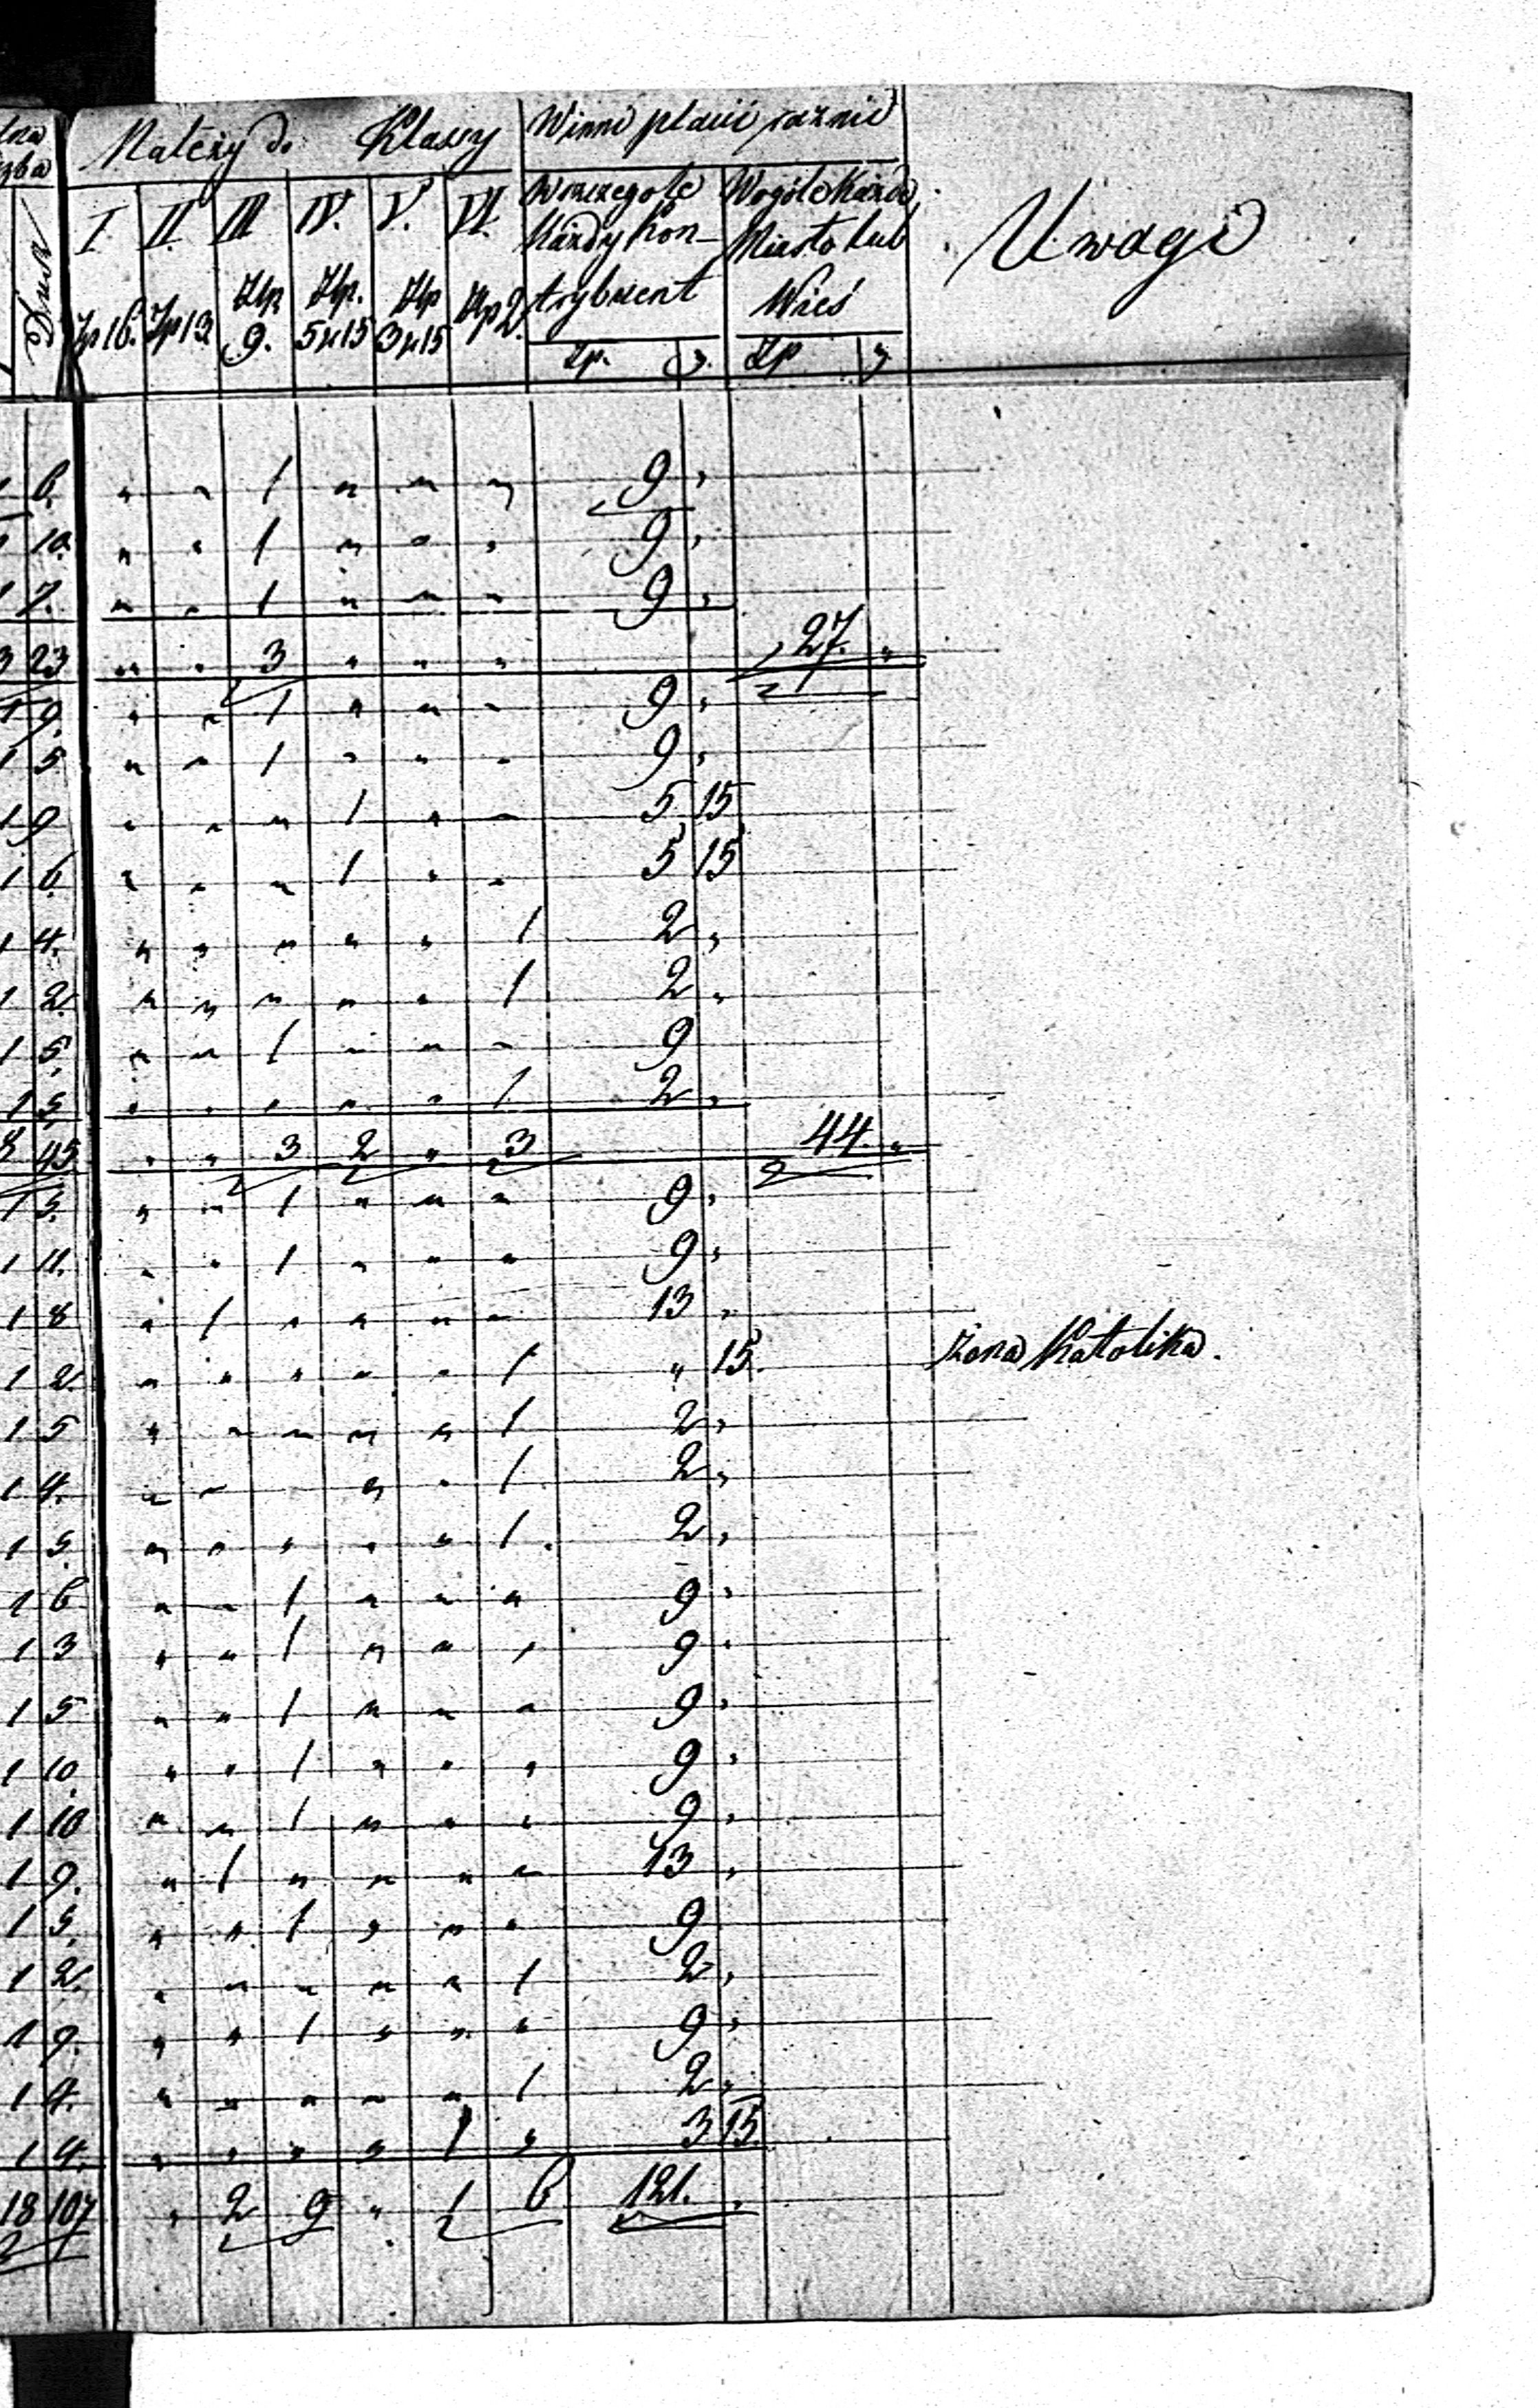 Należy do Klassy Winni płacić rocznie
Uwagi
I. II. III IV. V. VI.
Wszczególe Każdy Kon-trybuent
Wogóle Każde Miasto lub Wieś
Dusz
Zp 16. Zp 13 Złp 9. Złp. 5 gr 15 Złp 3 gr 15 Złp 2.
Zp. g. Zp g
1 6. " " 1 " " " 9 "
1 10. " " 1 " " " 9 "
1 7. " " 1 " " " 9 "
3 23 " " 3 " " " 27. "
1 9. " " 1 " " " 9 "
1 5 " " 1 " " " 9 "
1 9 " " " 1 " " 5 15
1 6. " " " 1 " " 5 15
1 4. " " " " " 1 2 "
1 2. " " " " " 1 2 "
1 5. " " 1 " " " 9
1 5. " " " " " 1 2 "
8 45 " " 3 2 " 3 44. "
1 5. " " 1 " " " 9 "
1 11. " " 1 " " " 9 "
1 8 " 1 " " " " 13 "
1 2. " " " " " 1 " 15. Żona Katolika.
1 5 " " " " " 1 2 "
1 4. " " " " 1 2 "
1 5. " " " " " 1. 2 "
1 6 " " 1 " " " 9 "
1 3 " " 1 " " " 9 "
1 5 " " 1 " " " 9 "
1 10. " " 1 " " " 9 "
1 10 " " 1 " " " 9 "
1 9. " 1 " " " " 13 "
1 5. " " 1 " " " 9
1 2. " " " " " 1 2 "
1 9. " " 1 " " " 9 "
1 4. " " " " " 1 2 "
1 4. " " " " 1 " 3 15
18 107 " 2 9 " 1 6 121. "